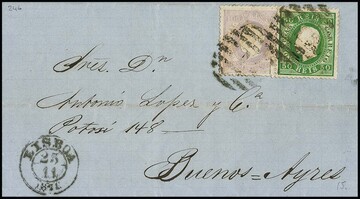 Sres. Dn
Antonio Lopez y Cª
Potosi 148
Buenos-Ayres
LISBOA
25
11
50 REIS 50